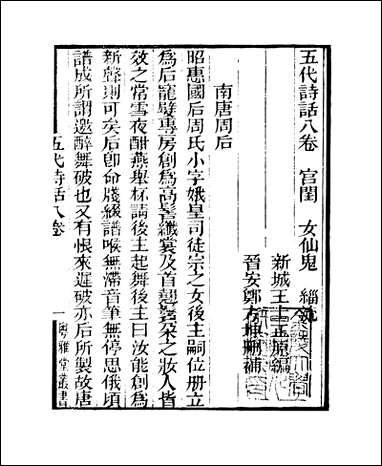 五代詩話八卷 宮閨 女仙鬼 緇
新城王士正原編
晉安鄭方坤刪補
南唐周后
昭惠國后周氏小字娥皇司徒宗之女後主嗣位册立
爲后寵嬖專房創爲高髻纖裳及首翹鬢朶之妝人皆
效之常雪夜酣燕舉杯請後主起舞後主曰汝能創爲
新聲則可矣后卽命牋綴譜喉無滯音筆無停思俄頃
譜成所謂邀醉舞破也又有恨來遲破亦后所製故唐
五代詩話八卷
一
粤雅堂叢書